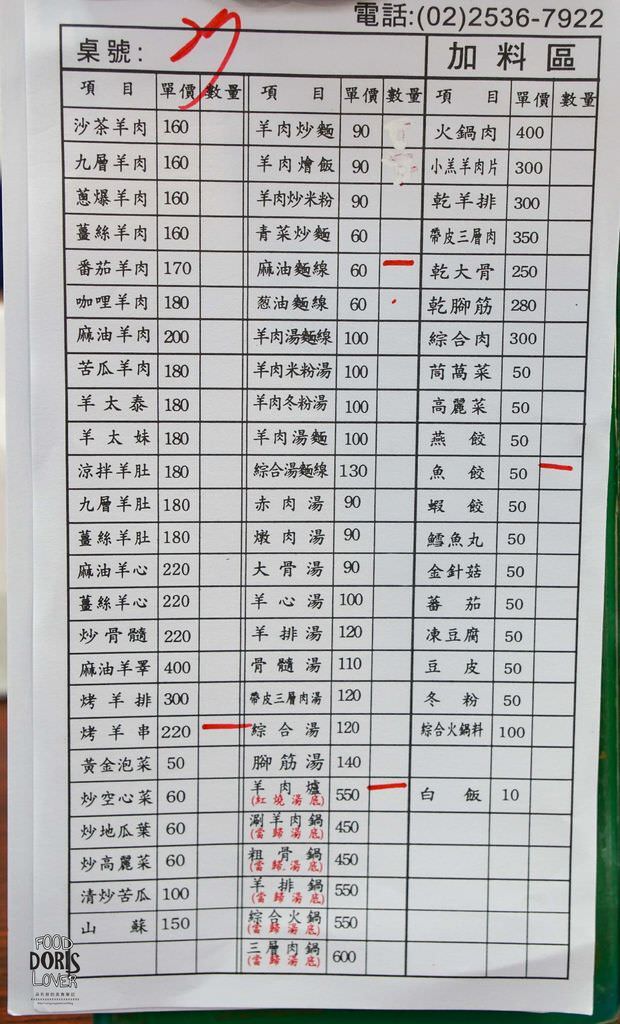 電話:(02)2536-7922
桌號: 加料區
項目 單價 數量 項目 單價 數量 項目 單價 數量
沙茶羊肉 160 羊肉炒麵 90 火鍋肉 400
九層羊肉 160 羊肉燴飯 90 小羔羊肉片 300
蔥爆羊肉 160 羊肉炒米粉 90 乾羊排 300
薑絲羊肉 160 青菜炒麵 60 帶皮三層肉 350
番茄羊肉 170 麻油麵線 60 乾大骨 250
咖哩羊肉 180 葱油麵線 60 乾腳筋 280
麻油羊肉 200 羊肉湯麵線 100 綜合肉 300
苦瓜羊肉 180 羊肉米粉湯 100 茼萬菜 50
羊太泰 180 羊肉冬粉湯 100 高麗菜 50
羊太妹 180 羊肉湯麵 100 燕餃 50
涼拌羊肚 180 綜合湯麵線 130 魚餃 50
九層羊肚 180 赤肉湯 90 蝦餃 50
薑絲羊肚 180 燉肉湯 90 鱈魚丸 50
麻油羊心 220 大骨湯 90 金針菇 50
薑絲羊心 220 羊心湯 100 蕃茄 50
炒骨髓 220 羊排湯 120 凍豆腐 50
麻油羊睪 400 骨髓湯 110 豆皮 50
烤羊排 300 帶皮三層肉湯 120 冬粉 50
烤羊串 220 綜合湯 120 綜合火鍋料 100
黃金泡菜 50 腳筋湯 140
炒空心菜 60 羊肉爐 550 白飯 10
(紅燒湯底)
炒地瓜葉 60 涮羊肉鍋 450
(當歸湯底)
炒高麗菜 60 粗骨鍋 450
(當歸湯底)
清炒苦瓜 100 羊排鍋 550
(當歸湯底)
山蘇 150 綜合火鍋 550
(當歸湯底)
三層肉鍋 600
(當歸湯底)
FOOD
DORIS
LOVER